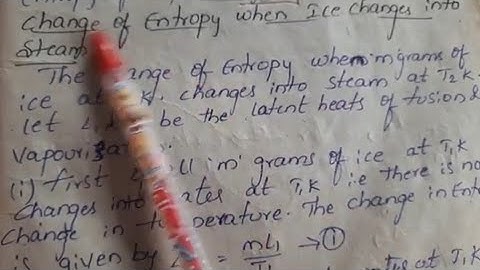 Change of Entropy when Ice changes into
Steam
The change of Entropy when m grams of
ice at K. changes into steam at T2 K.
let L be the latent heats of fusion &
Vapourisation.
(i) first all 'm' grams of ice at T1 K
Changes into at T1 K i.e there is no
Change in temperature. The change in Ent
is given by = mL1 → ①
at T1 K